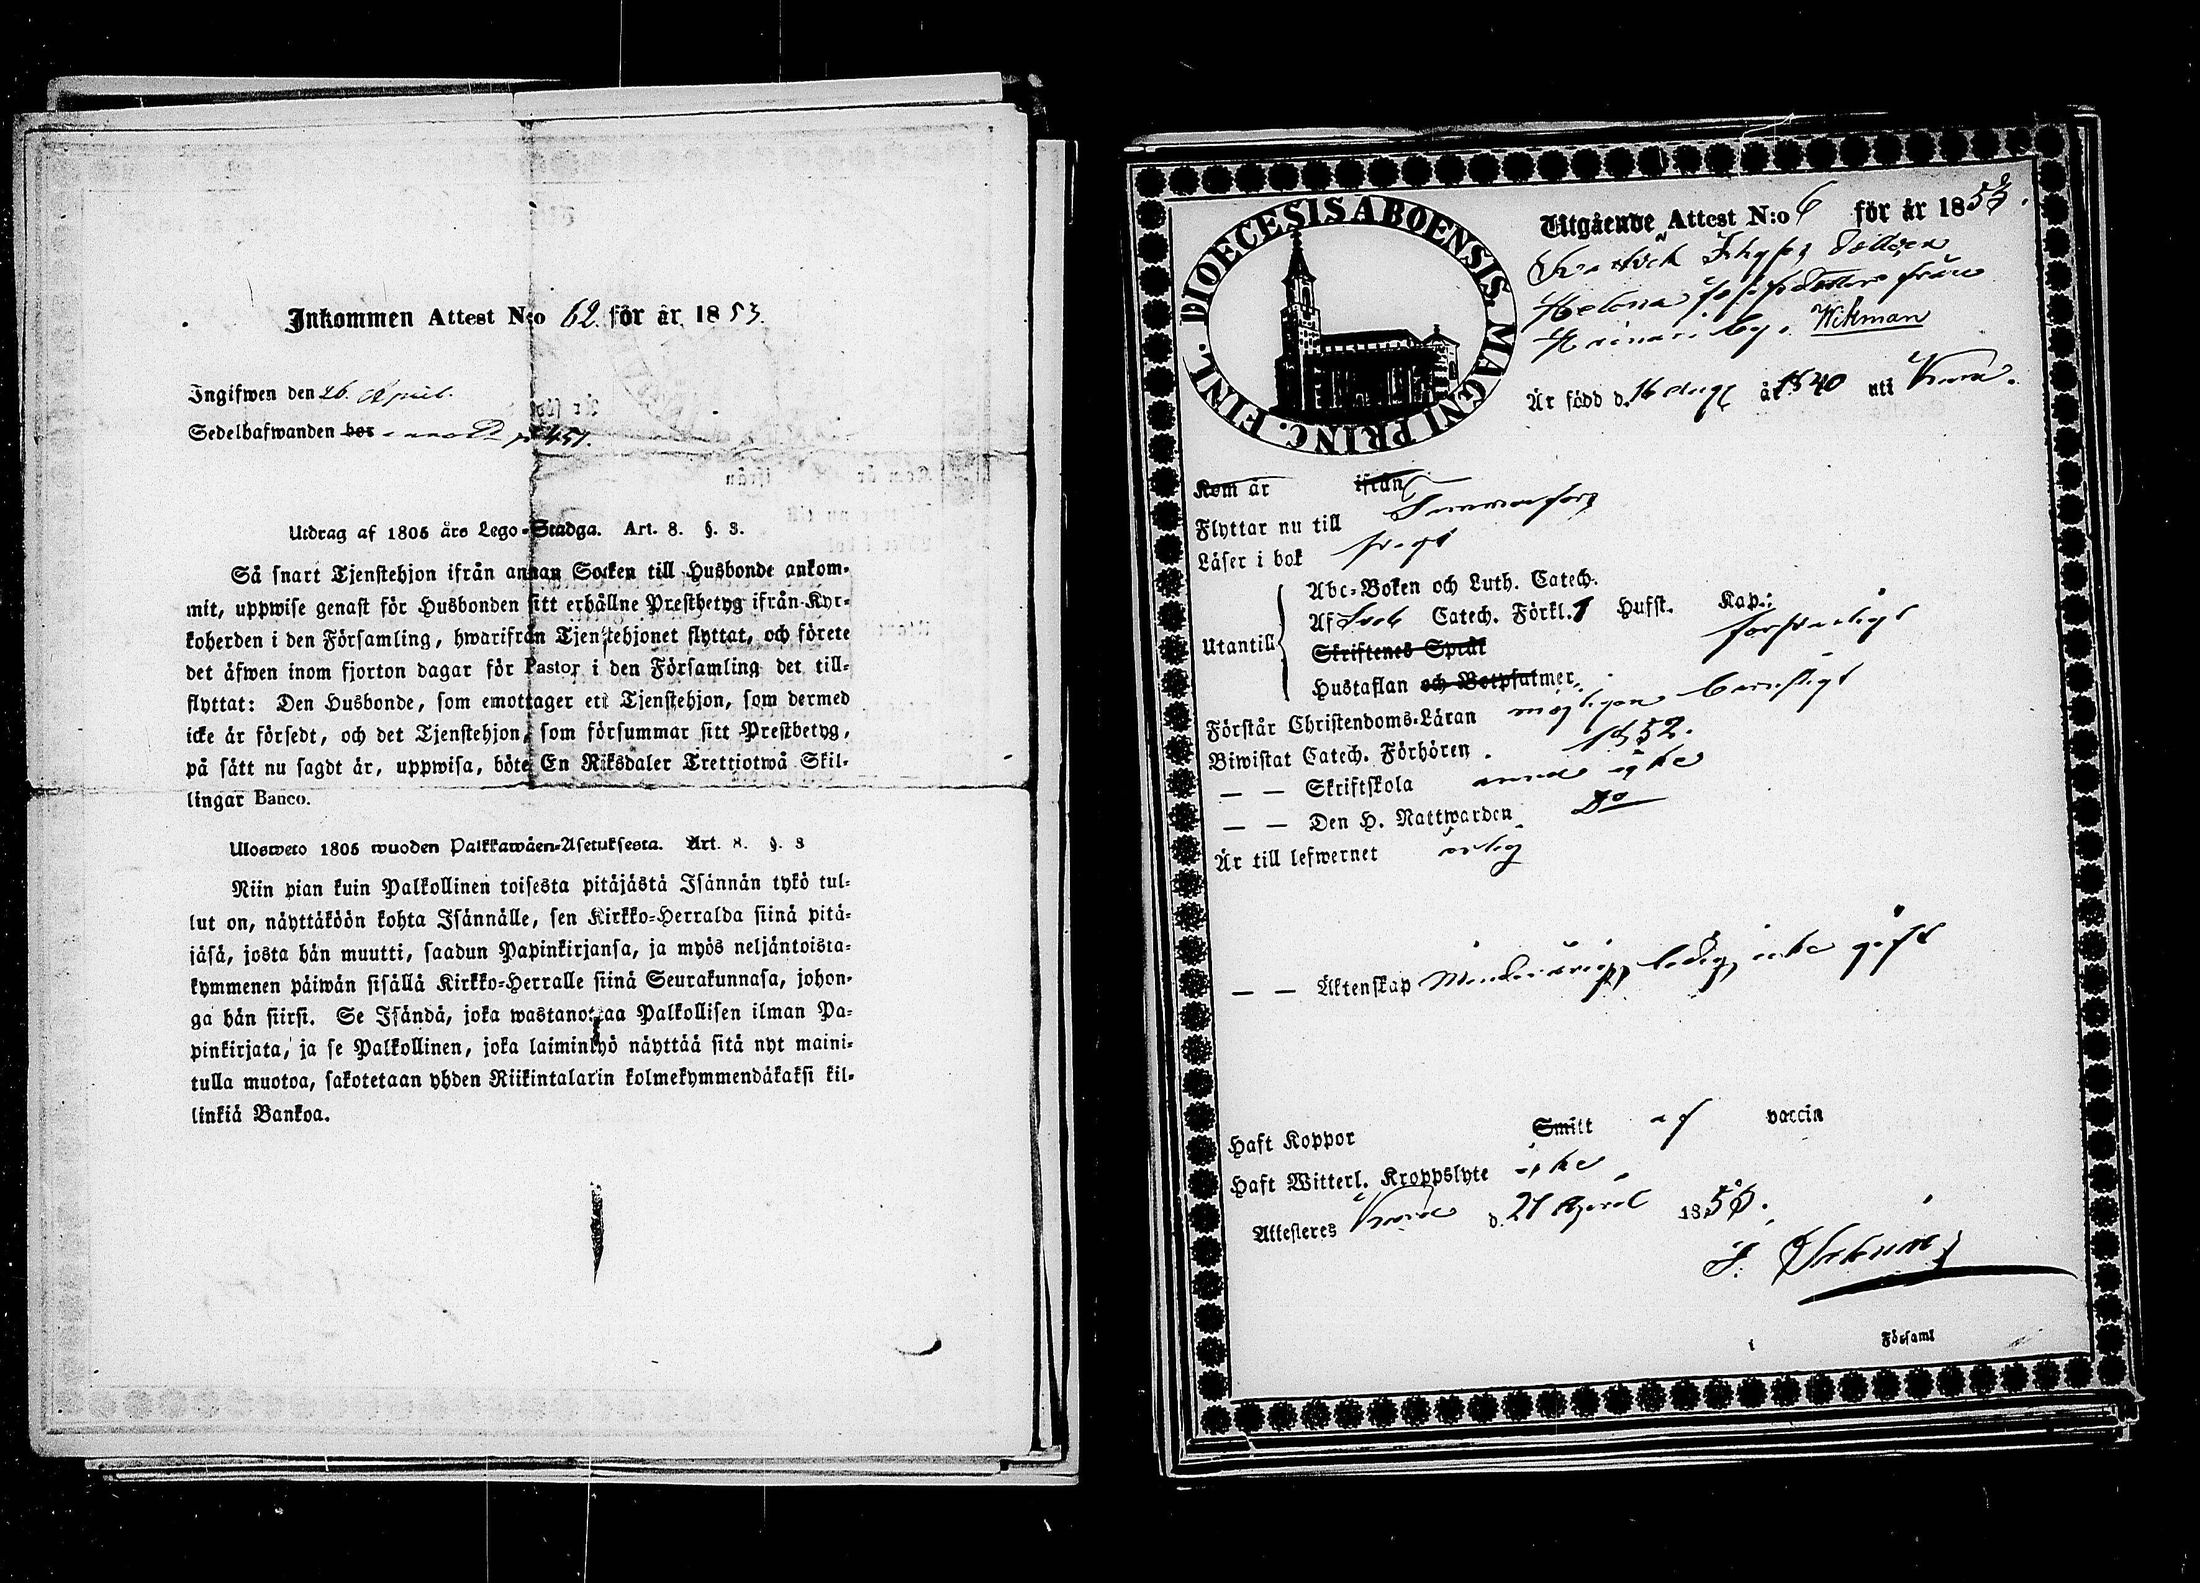 Inkommen Attest N:o 62. för år 1853.
Ingifwen den 26. April.
Sedelhafwanden bor p 451.
Utdrag af 1805 års Lego-Stadga. Art. 8. §. 3.
Så snart Tjenstehjon ifrån annan Socken till Husbonde ankom-
mit, uppwise genast för Husbonden sitt erhållne Prestbetyg ifrån Kyr-
koherden i den Församling, hwarifrån Tjenstehjonet flyttat, och förete
det äfwen inom fjorton dagar för Pastor i den Församling det till-
flyttat: Den Husbonde, som emottager ett Tjenstehjon, som dermed
icke är försedt, och det Tjenstehjon, som försummar sitt Prestbetyg,
på sätt nu sagdt är, uppwisa, böte En Riksdaler Trettiotwå Skil-
lingar Banco.
Ulosweto 1805 wuoden Palkkawäen-Asetuksesta. Art. 8. §. 3
Niin pian kuin Palkollinen toisesta pitäjästä Isännän tykö tul-
lut on, näyttäköön kohta Isännälle, sen Kirkko-Herralda siinä pitä-
jäsä, josta hän muutti, saadun Papinkirjansa, ja myös neljäntoista-
kymmenen päiwän sisällä Kirkko-Herralle siinä Seurakunnasa, johon-
ga hän siirsi. Se Isändä, joka wastanottaa Palkollisen ilman Pa-
pinkirjata, ja se Palkollinen, joka laiminlyö näyttää sitä nyt maini-
tulla muotoa, sakotetaan yhden Riikintalarin kolmekymmendäkaksi kil-
linkiä Bankoa.
DIOECESIS ABOENSIS. MAGNI PRINC. FINL.
Utgående Attest N:o 6 för år 1853.
Helena från
by. Wikman
Är född d. 16 Aug år 1840 uti
Kom år ifrån
Flyttar nu till Tammerfors
Läser i bok
Utantill
Abc-Boken och Luth. Catech.
Af Sveb Catech. Förkl. 1 Hufst. Kap.:
Skriftenes Språk försvarligt
Hustaflan och Botpsalmer
Förstår Christendoms-Läran möjligen barnsligt
Biwistat Catech. Förhören 1852.
— — Skriftskola ännu icke
— — Den H. Nattwarden Do
Är till lefwernet ärlig
— — Äktenskap Minderårig, ledig, icke gift
Haft Koppor Smitt af vaccin
Haft Witterl. Kroppslyte icke
Attesteres d. 21 April 1853.
Församl